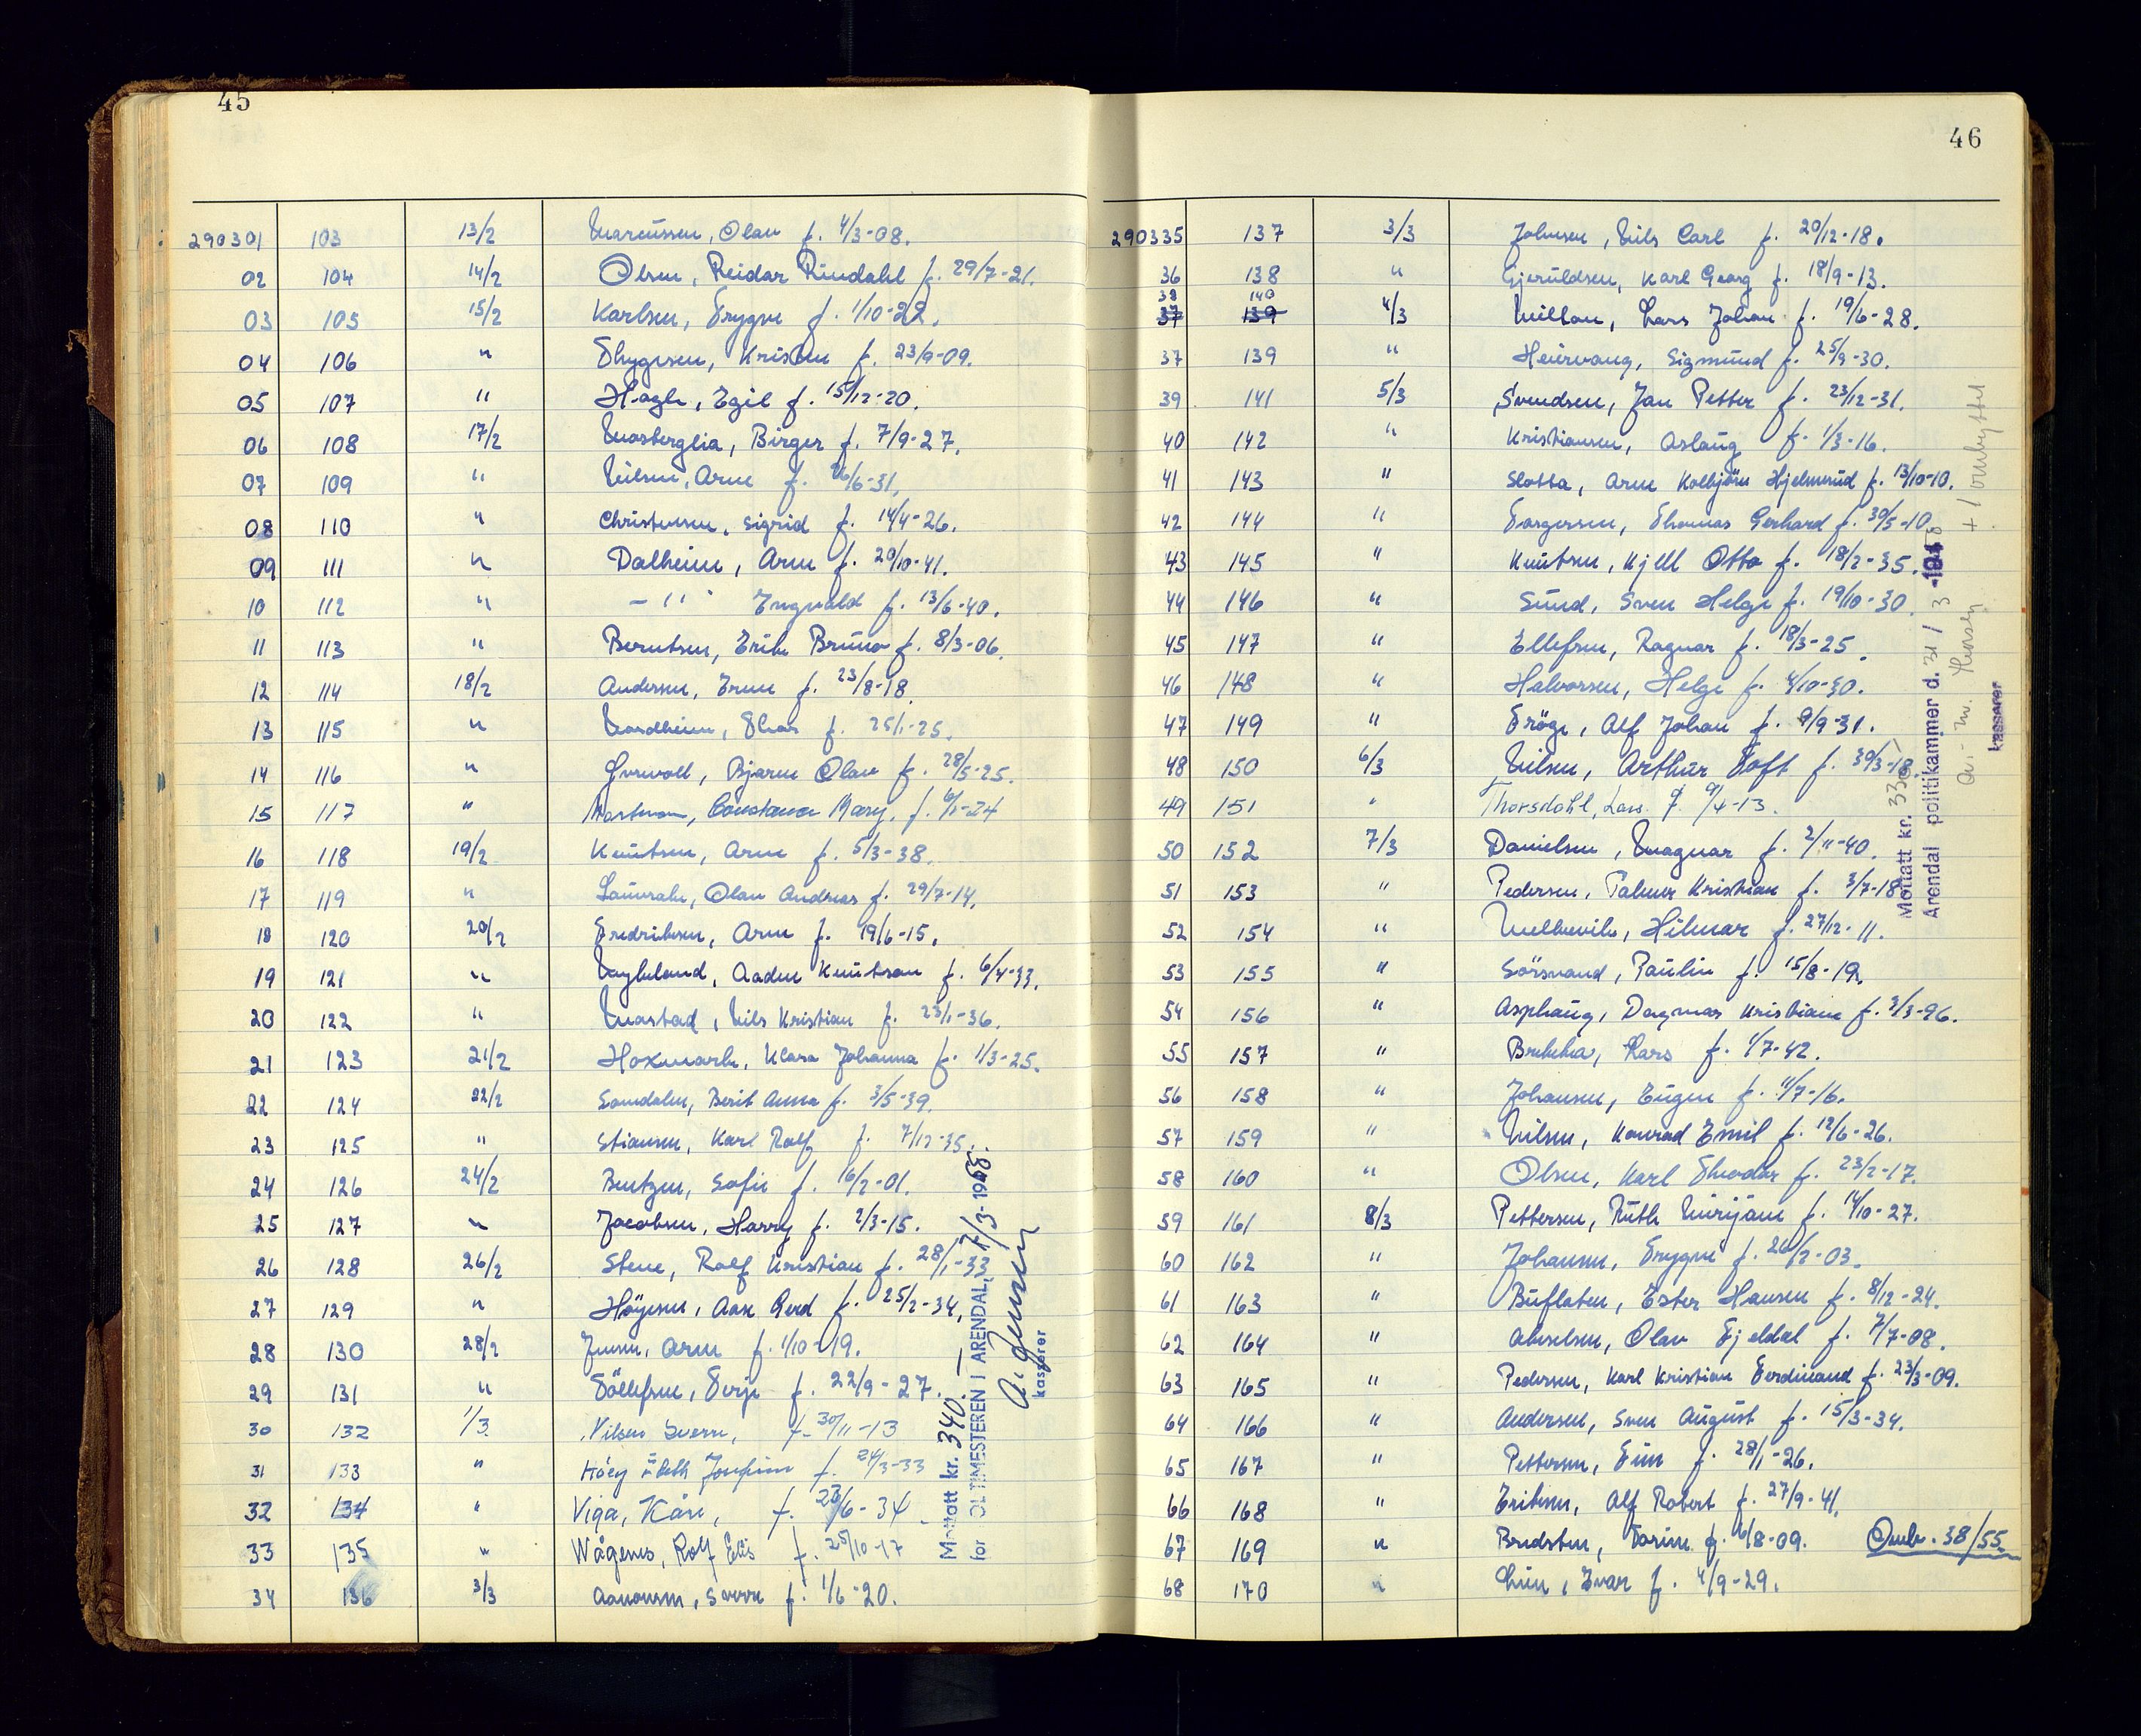 45
290301 103 13/2 Marcussen, Olav f. 4/3-08.
02 104 14/2 Olsen, Reidar Rindahl f. 29/7-21.
03 105 15/2 Karlsen, Trygve f. 1/10-22.
04 106 " Thygesen, Kristen f. 23/9-09.
05 107 " Hagle, Egil f. 15/12-20.
06 108 17/2 Mosberglia, Birger f. 7/9-27.
07 109 " Nilsen, Arne f. /6-31.
08 110 " Christensen, Sigrid f. 14/4-26.
09 111 " Dalheim, Arne f. 20/10-41.
10 112 " - " - Engvald f. 13/6-40.
11 113 " Berntsen, Erik Bruno f. 8/3-06.
12 114 18/2 Andersen, f. 23/8-18.
13 115 " Nordheim, f. 25/1-25.
14 116 " Bjarne Olav f. 28/5-25.
15 117 " Constance Mary, f. 6/1-24
16 118 19/2 Knutsen, Arne f. 5/3-38.
17 119 " Olav Andreas f. 29/7-14.
18 120 20/2 Fredriksen, Arne f. 19/6-15.
19 121 " Aadne Knutson f. 6/4-33.
20 122 " Mostad, Nils Kristian f. 23/1-36.
21 123 21/2 Hoxmark, Klara Johanna f. 1/3-25.
22 124 22/2 Somdalen, Berit Anna f. 3/5-39.
23 125 " Stiansen, Karl Rolf f. 7/12-35.
24 126 24/2 Bentzen, Sofie f. 16/2-01.
25 127 " Jacobsen, Harry f. 2/3-15.
26 128 26/2 Stene, Rolf Kristian f. 28/1-33
27 129 " Höyesen, Aase Gerd f. 25/2-34,
28 130 28/2 Jensen, Arne f. 1/10-19.
29 131 " Töllefsen, Terje f. 22/9-27.
30 132 1/3 Nilsen Sverre, f. 30/11-13
31 133 " f. 24/3-33
32 134 " Viga, Kåre, f. 23/6-34
33 135 " Wågenes, Rolf f. 25/10-17
34 136 3/3 Aanonsen, Sverre f. 1/6-20.
Mottatt kr. 340.—
for POLITIMESTEREN I ARENDAL, 7/3-1958.
kasserer
46
290335 137 3/3 Johnsen, Nils Carl f. 20/12-18.
36 138 " Gjeruldsen, Karl Georg f. 18/9-13.
38 140
37 139 4/3 Lars Johan f. 19/6-28.
37 139 " Heiervang, Sigmund f. 25/9-30.
39 141 5/3 Svendsen, Jan Petter f. 23/12-31.
40 142 " Kristiansen, Aslaug f. 1/3-16.
41 143 " Slotta, Arne Kolbjörn Hjelmerud f. 13/10-10.
42 144 " Torgersen, Thomas Gerhard f. 30/5-10
43 145 " Knutsen, Kjell Otto f. 18/2-35.
44 146 " Sund, Sven Helge f. 19/10-30
45 147 " Ellefsen, Ragnar f. 18/3-25.
46 148 " Halvorsen, Helge f. 4/10-30.
47 149 " Alf Johan f. 9/9-31.
48 150 6/3 Nilsen, Arthur Toft f. 30/3-18.
49 151 " Thorsdahl, Lars. f. 9/4-13.
50 152 7/3 Danielsen, Magnar f. 2/11-40.
51 153 " Pedersen, Palmer Kristian f. 3/7-18
52 154 " Hilmar f. 27/12-11.
53 155 " Sörsvand, Paulin f. 15/8-19.
54 156 " Asphaug, Dagmar Kristiane f. 3/3-96.
55 157 " Brekka, Lars f. 1/7-42.
56 158 " Johansen, Eugen f. 11/7-16.
57 159 " Nilsen, Konrad Emil f. 12/6-26.
58 160 " Olsen, Karl Theodor f. 23/2-17.
59 161 8/3 Pettersen, Ruth Mirijam f. 14/10-27.
60 162 " Johansen, Trygve f. 26/2-03.
61 163 " Buflaten, Ester Hansen f. 8/12-24.
62 164 " Akselsen, Olav Fjeldal f. 7/7-08.
63 165 " Pedersen, Karl Kristian Ferdinand f. 23/3-09.
64 166 " Andersen, Sven August f. 15/3-34.
65 167 " Pettersen, Finn f. 28/1-26.
66 168 " Eriksen, Alf Robert f. 27/9-41.
67 169 " Bredsten, Torine f. 6/8-09. Omb. 38/55
68 170 " Lien, Ivar f. 4/9-29.
Mottatt kr. 330,-
Arendal politikammer d. 31/3-1958
+ 1 ombyttet
kasserer